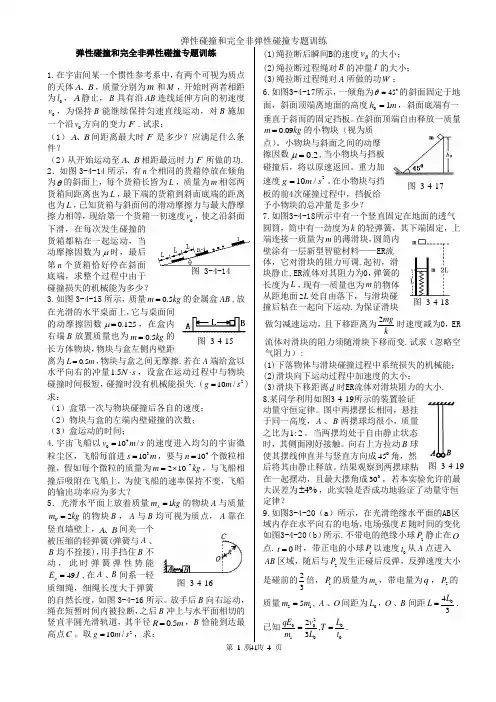 弹性碰撞和完全非弹性碰撞专题训练
弹性碰撞和完全非弹性碰撞专题训练
1.在宇宙间某一个惯性参考系中,有两个可视为质点
的天体A、B,质量分别为m和M,开始时两者相距
为l₀,A静止,B具有沿AB连线延伸方向的初速度
v₀,为保持B能继续保持匀速直线运动,对B施加
一个沿v₀方向的变力F.试求:
(1)A、B间距最大时F是多少?应满足什么条
件?
(2)从开始运动至A、B相距最远时力F所做的功.
2.如图3-4-14所示,有n个相同的货箱停放在倾角
为θ的斜面上,每个货箱长皆为L,质量为m相邻两
货箱间距离也为L,最下端的货箱到斜面底端的距离
也为L,已知货箱与斜面间的滑动摩擦力与最大静摩
擦力相等,现给第一个货箱一初速度v₀,使之沿斜面
下滑,在每次发生碰撞的
货箱都粘在一起运动,当
动摩擦因数为μ时,最后
第n个货箱恰好停在斜面
底端,求整个过程中由于
碰撞损失的机械能为多少?
图 3-4-14
3.如图3-4-15所示,质量m=0.5kg的金属盒AB,放
在光滑的水平桌面上,它与桌面间
的动摩擦因数μ=0.125,在盒内
右端B放置质量也为m=0.5kg的
长方体物块,物块与盒左侧内壁距
离为L=0.5m,物块与盒之间无摩擦.若在A端给盒以
水平向右的冲量1.5N·s,设盒在运动过程中与物块
碰撞时间极短,碰撞时没有机械能损失.(g=10m/s²)
求:
图 3 4 15
(1)盒第一次与物块碰撞后各自的速度;
(2)物块与盒的左端内壁碰撞的次数;
(3)盒运动的时间;
4.宇宙飞船以v₀=10⁴m/s的速度进入均匀的宇宙微
粒尘区,飞船每前进s=10³m,要与n=10⁴个微粒相
撞,假如每个微粒的质量为m=2×10⁻⁷kg,与飞船相
撞后吸附在飞船上,为使飞船的速率保持不变,飞船
的输出功率应为多大?
5.光滑水平面上放着质量mA=1kg的物块A与质量
mB=2kg的物块B,A与B均可视为质点,A靠在
竖直墙壁上,A、B间夹一个
被压缩的轻弹簧(弹簧与A、
B均不拴接),用手挡住B不
动,此时弹簧弹性势能
Ep=49J,在A、B间系一轻
质细绳,细绳长度大于弹簧
的自然长度,如图3-4-16所示.放手后B向右运动,
绳在短暂时间内被拉断,之后B冲上与水平面相切的
竖直半圆光滑轨道,其半径R=0.5m,B恰能到达最
高点C。取g=10m/s²,求:
图 3 4 16
(1)绳拉断后瞬间B的速度vB的大小;
(2)绳拉断过程绳对B的冲量I的大小;
(3)绳拉断过程绳对A所做的功W;
6.如图3-4-17所示,一倾角为θ=45°的斜面固定于地
面,斜面顶端离地面的高度h₀=1m,斜面底端有一
垂直于斜面的固定挡板.在斜面顶端自由释放一质量
m=0.09kg的小物块(视为质
点).小物块与斜面之间的动摩
擦因数μ=0.2.当小物块与挡板
碰撞后,将以原速返回.重力加
速度g=10m/s²,在小物块与挡
板的前4次碰撞过程中,挡板给
予小物块的总冲量是多少?
图 3 4 17
7.如图3-4-18所示中有一个竖直固定在地面的透气
圆筒,筒中有一劲度为k的轻弹簧,其下端固定,上
端连接一质量为m的薄滑块,圆筒内
壁涂有一层新型智能材料——ER流
体,它对滑块的阻力可调.起初,滑
块静止,ER流体对其阻力为0,弹簧的
长度为L,现有一质量也为m的物体
从距地面2L处自由落下,与滑块碰
撞后粘在一起向下运动.为保证滑块
做匀减速运动,且下移距离为2mg/k时速度减为0,ER
流体对滑块的阻力须随滑块下移而变.试求(忽略空
气阻力):
图 3 4 18
(1)下落物体与滑块碰撞过程中系统损失的机械能;
(2)滑块向下运动过程中加速度的大小;
(3)滑块下移距离d时ER流体对滑块阻力的大小.
8.某同学利用如图3 4 19所示的装置验证
动量守恒定律.图中两摆摆长相同,悬挂
于同一高度,A、B两摆球均很小,质量
之比为1:2.当两摆均处于自由静止状态
时,其侧面刚好接触.向右上方拉动B球
使其摆线伸直并与竖直方向成45°角,然
后将其由静止释放.结果观察到两摆球粘
在一起摆动,且最大摆角成30°,若本实验允许的最
大误差为±4%,此实验是否成功地验证了动量守恒
定律?
图 3 4 19
9.如图3-4-20(a)所示,在光滑绝缘水平面的AB区
域内存在水平向右的电场,电场强度E随时间的变化
如图3-4-20(b)所示.不带电的绝缘小球P₂静止在O
点.t=0时,带正电的小球P₁以速度t₀从A点进入
AB区域,随后与P₂发生正碰后反弹,反弹速度大小
是碰前的2/3倍,P₁的质量为m₁,带电量为q,P₂的
质量m₂=5m₁,A、O间距为L₀,O、B间距L=4L₀/3.
已知qE₀/m₁=2v₀²/3L₀,T=L₀/t₀.